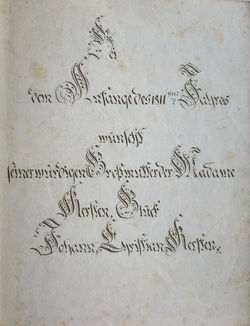 Zu
dem Anfange des 1811ten Jahres
wünscht
seiner würdigen Großmutter der Madame
Kersten, Glück
Johann Christian Kersten.